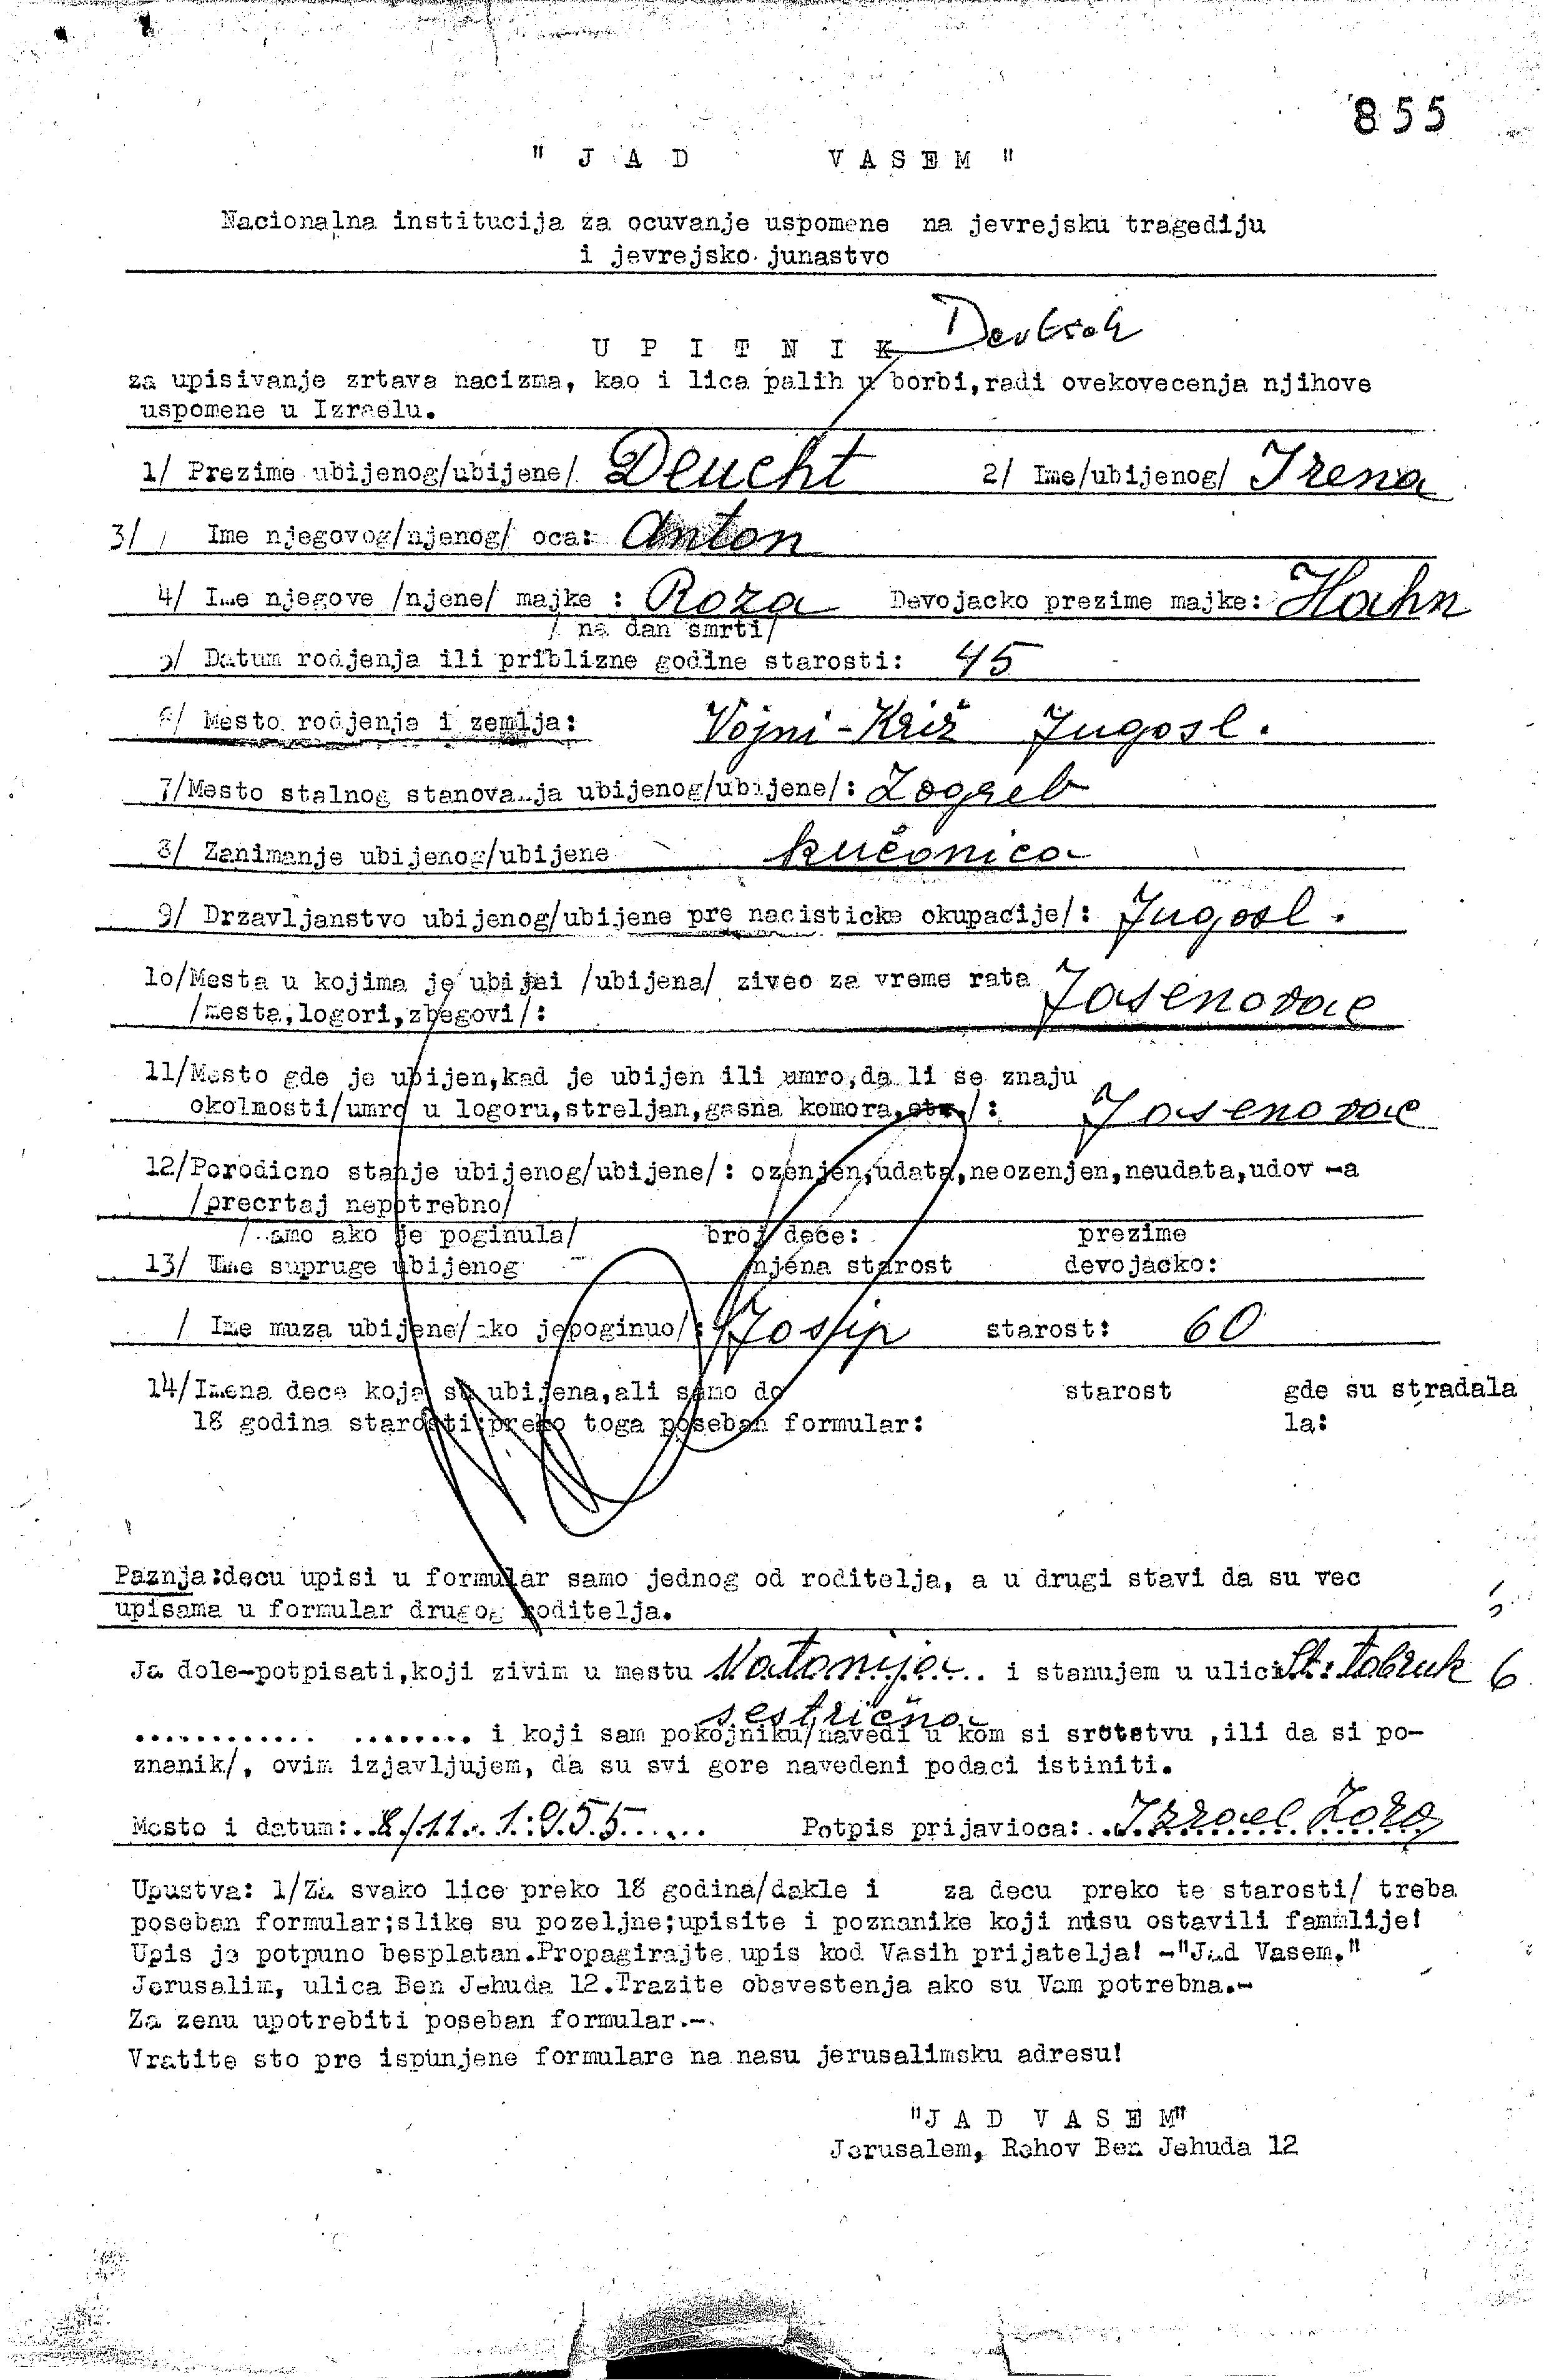 855
" J A D V A S E M "
Nacionalna institucija za ocuvanje uspomene na jevrejsku tragediju
i jevrejsko junastvo
Deutsch
U P I T N I K
za upisivanje zrtava nacizma, kao i lica palih u borbi,radi ovekovecenja njihove
uspomene u Izraelu.
1/ Prezime ubijenog/ubijene/ Deucht 2/ Ime/ubijenog/ Irena
3/ Ime njegovog/njenog/ oca: Anton
4/ Ime njegove /njene/ majke : Roza Devojacko prezime majke: Hahn
/ na dan smrti/
5/ Datum rodjenja ili priblizne godine starosti: 45
6/ Mesto rodjenja i zemlja: Vojni-Križ Jugosl.
7/Mesto stalnog stanovanja ubijenog/ubijene/: Zagreb
8/ Zanimanje ubijenog/ubijene kućanica
9/ Drzavljanstvo ubijenog/ubijene pre nacisticke okupacije/: Jugosl.
lo/Mesta u kojima je ubijei /ubijena/ ziveo za vreme rata Jasenovac
/mesta,logori,zbegovi/:
11/Mesto gde je ubijen,kad je ubijen ili umro,da li se znaju
okolnosti/umro u logoru,streljan,gasna komora,str./: Jasenovac
12/Porodicno stanje ubijenog/ubijene/: ozenjen,udata,neozenjen,neudata,udov -a
/precrtaj nepotrebno/
/samo ako je poginula/ broj dece: prezime
13/ Ime supruge ubijenog njena starost devojacko:
/ Ime muza ubijene/ako jepoginuo/: Josip starost: 60
14/Imena dece koja su ubijena,ali samo do starost gde su stradala
18 godina starosti;preko toga poseban formular: la:
Paznja:decu upisi u formular samo jednog od roditelja, a u drugi stavi da su vec
upisama u formular drugog roditelja.
Ja dole-potpisati,koji zivim u mestu Natanija.. i stanujem u ulici St: Tobruk 6
sestrična
............ ........ i koji sam pokojniku/navedi u kom si srotstvu ,ili da si po-
znanik/, ovim izjavljujem, da su svi gore navedeni podaci istiniti.
Mesto i datum:..8/11..1.955..... Potpis prijavioca: Izrael Zora
Upustva: 1/Za svako lice preko 18 godina/dakle i za decu preko te starosti/ treba
poseban formular;slike su pozeljne;upisite i poznanike koji nisu ostavili familije!
Upis je potpuno besplatan.Propagirajte upis kod Vasih prijatelja! -"Jad Vasem."
Jerusalim, ulica Ben Jehuda 12.Trazite obavestenja ako su Vam potrebna.-
Za zenu upotrebiti poseban formular.-.
Vratite sto pre ispunjene formulare na nasu jerusalimsku adresu!
"J A D V A S E M"
Jerusalem, Rehov Ben Jehuda 12